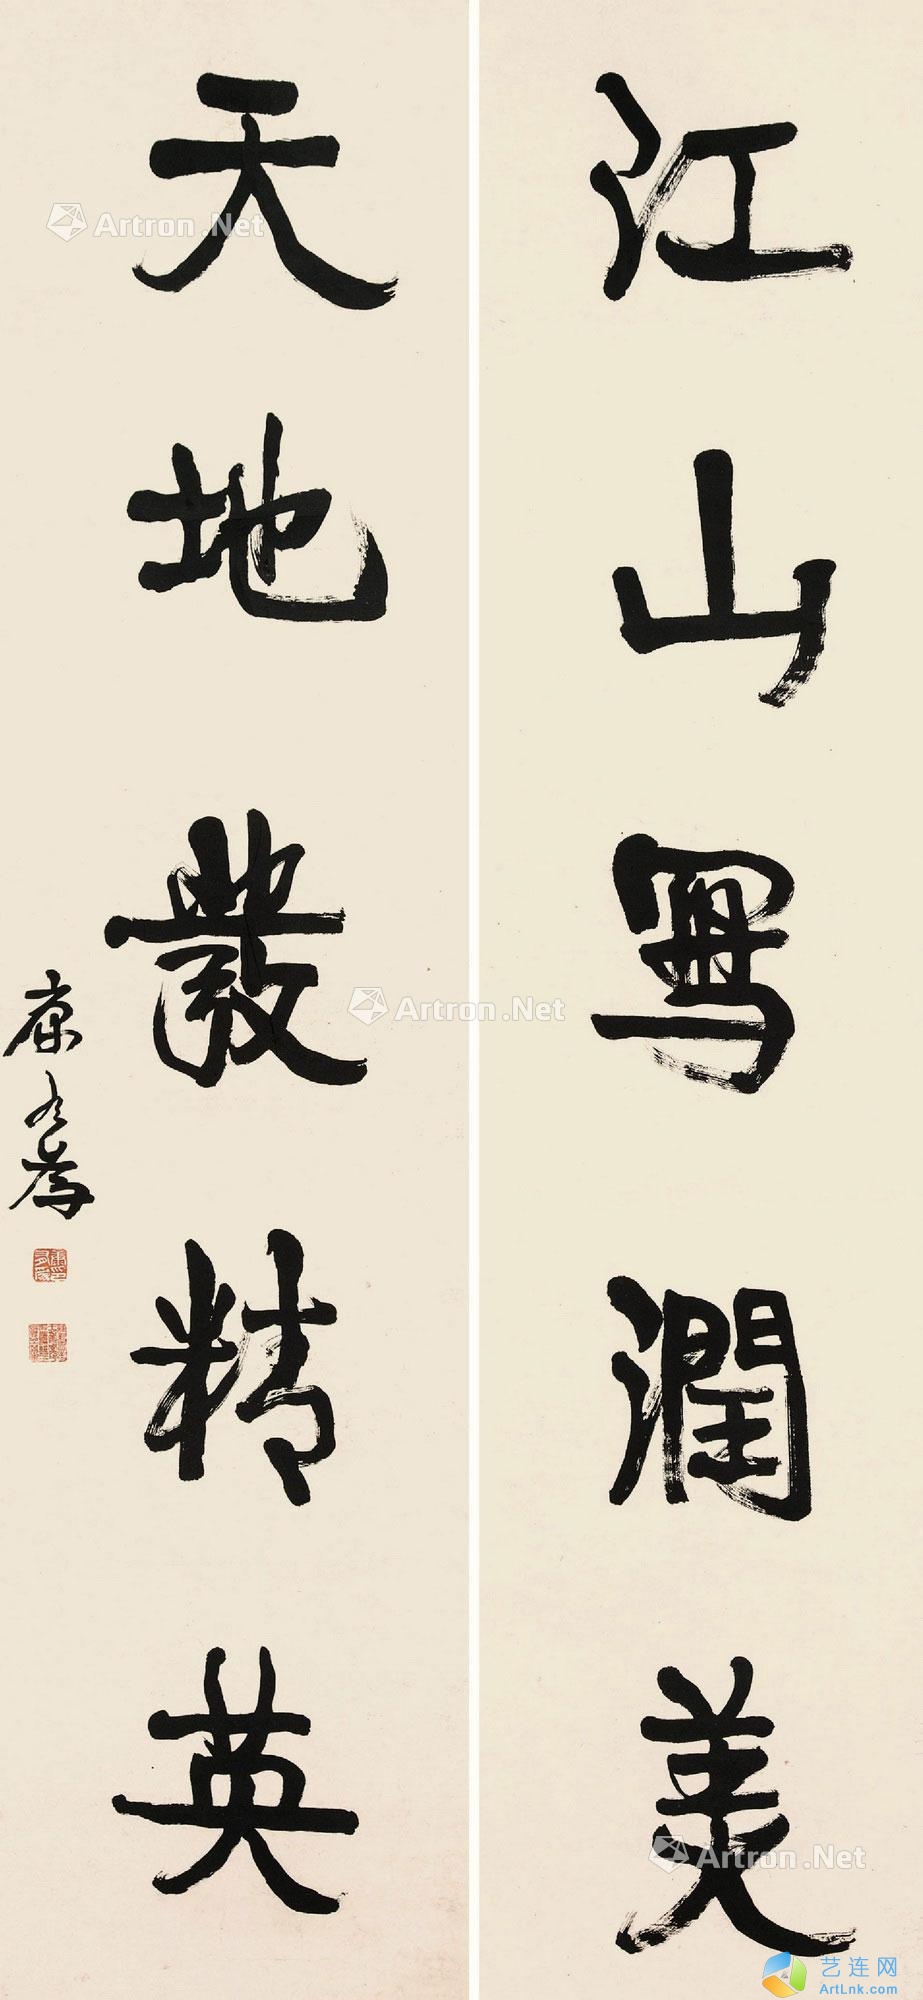 江山寫潤美
天地發精英
康有為
Artron.Net
Artron.Net
Artron.Net
艺连网
ArtLnk.com